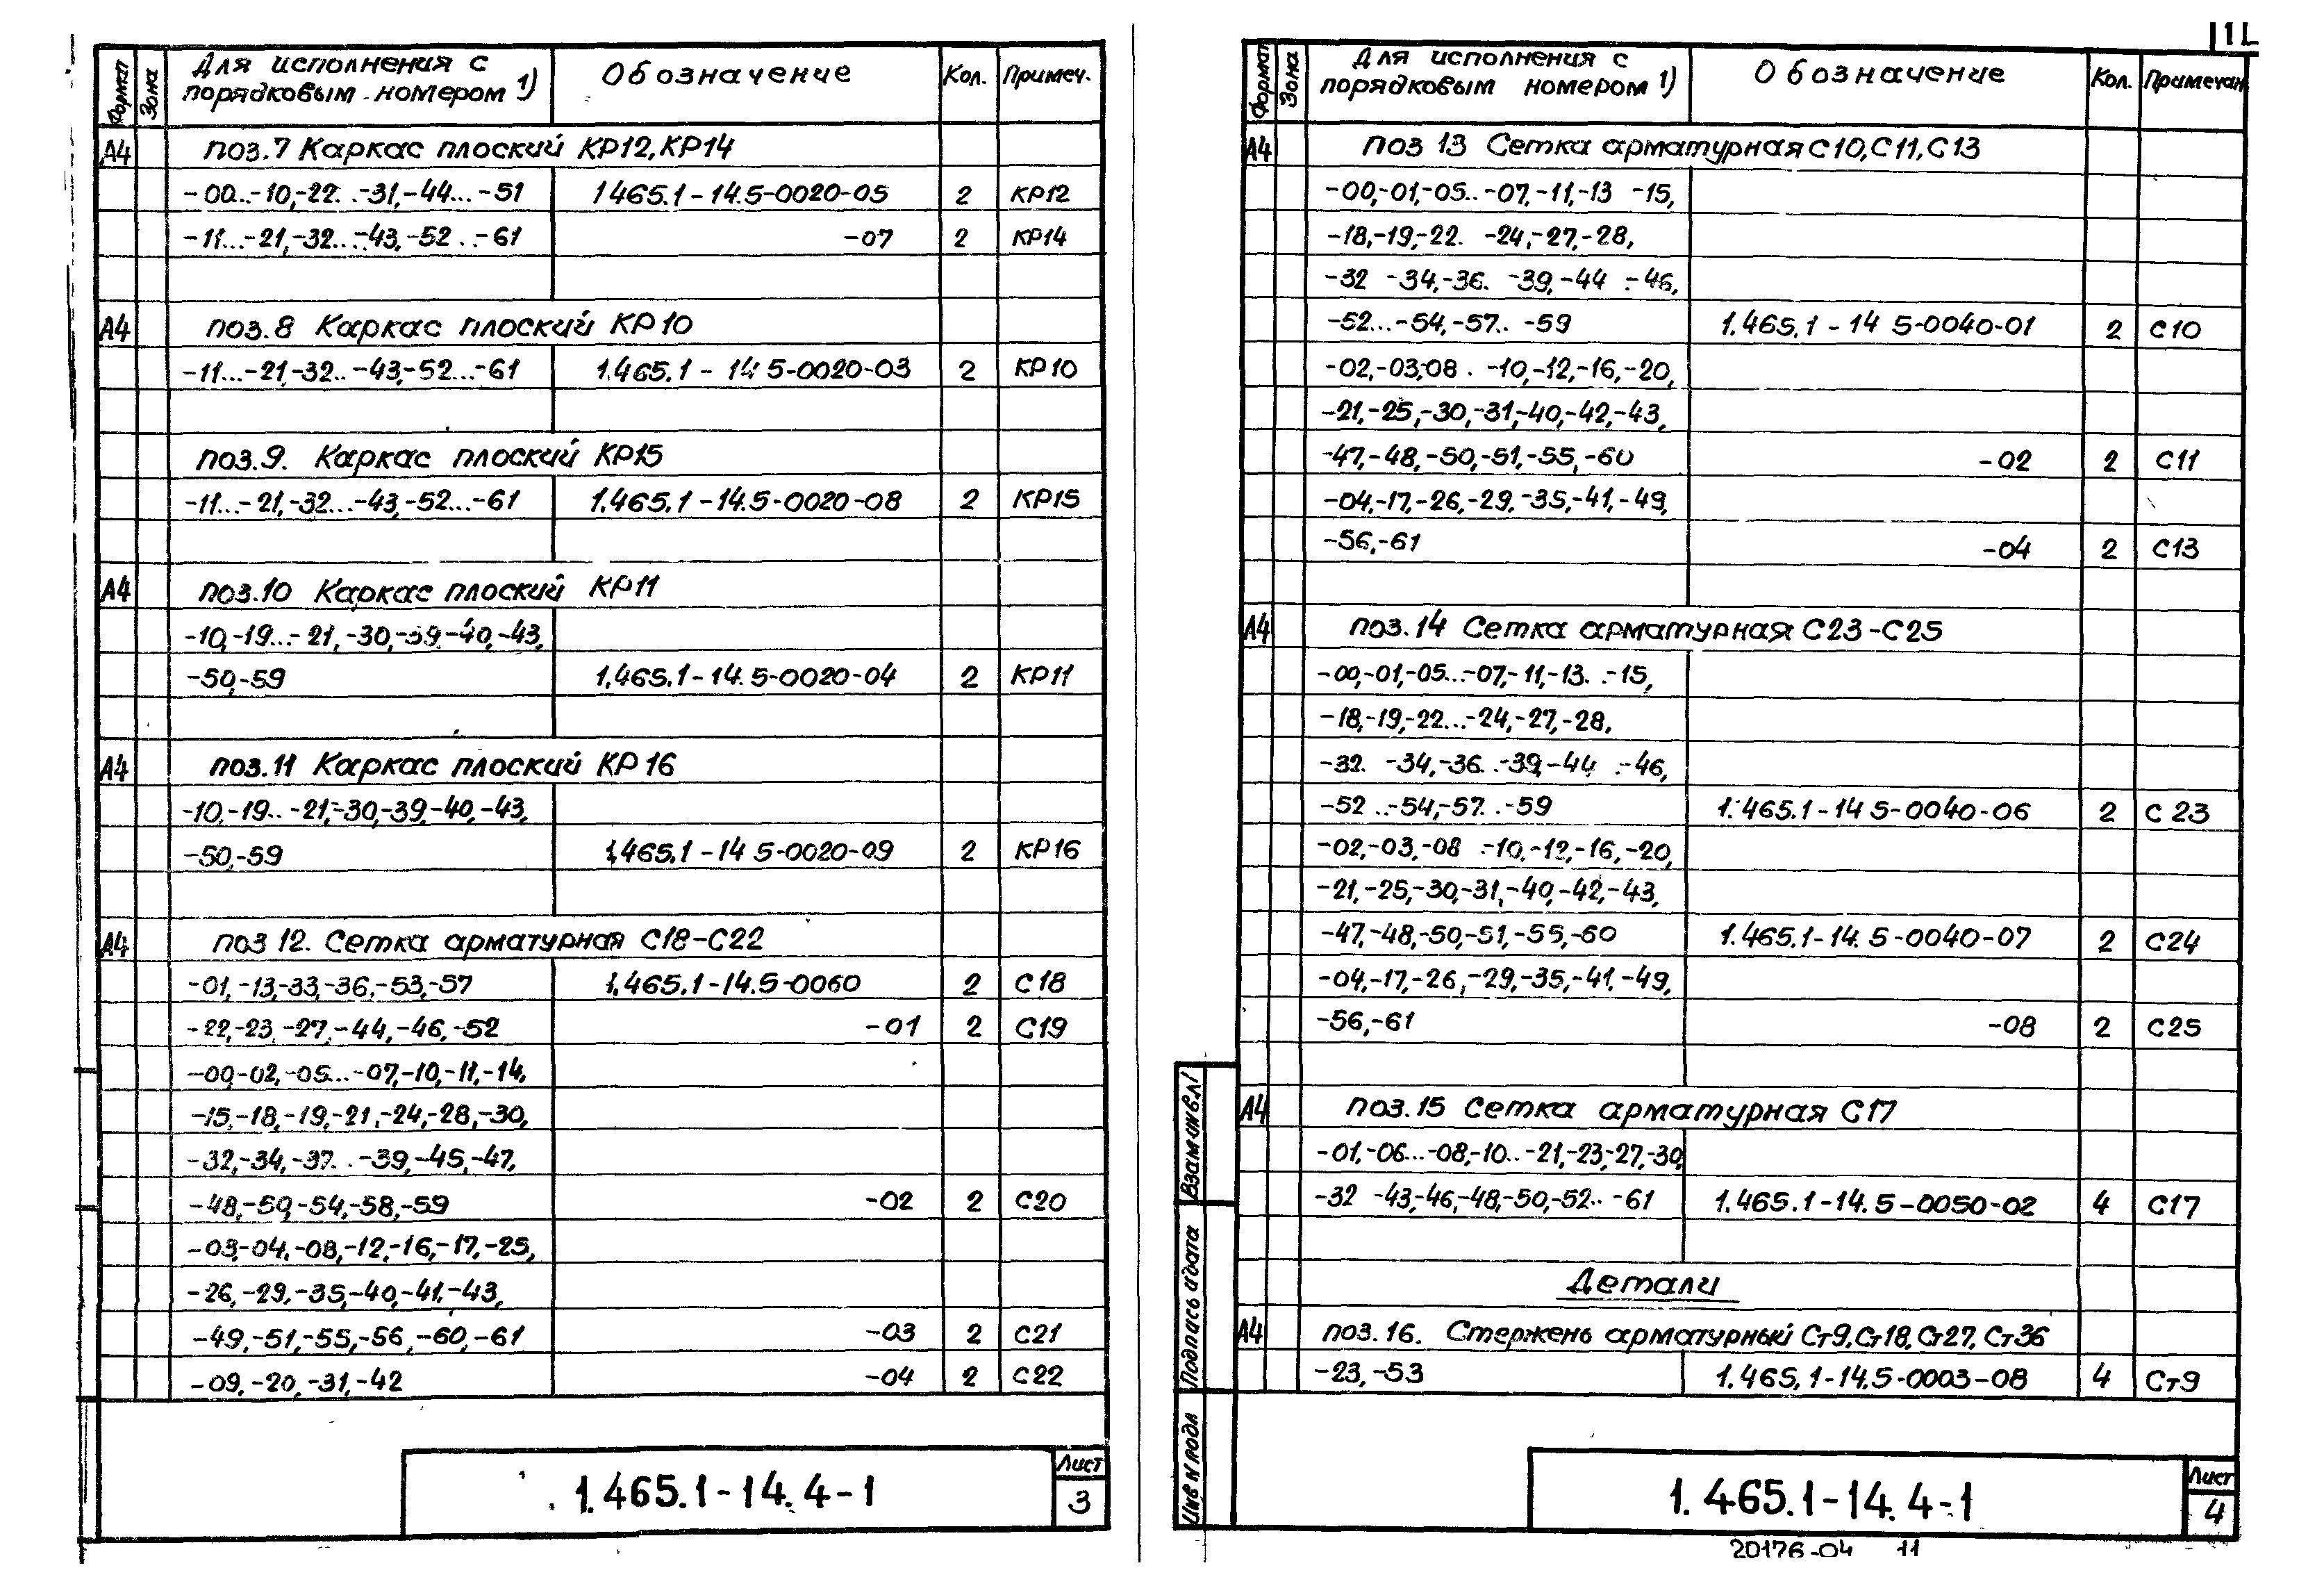 Формат Зона Для исполнения с порядковым номером 1) Обозначение Кол. Примеч.
А4 поз.7 Каркас плоский КР12, КР14
-00...-10,-22...-31,-44...-51 1465.1-14.5-0020-05 2 КР12
-11...-21,-32...-43,-52...-61 -07 2 КР14
А4 поз.8 Каркас плоский КР10
-11...-21,-32..-43,-52...-61 1.465.1-14.5-0020-03 2 КР10
поз.9. Каркас плоский КР15
-11...-21,-32...-43,-52...-61 1.465.1-14.5-0020-08 2 КР15
А4 поз.10 Каркас плоский КР11
-10,-19...-21,-30,-39,-40,-43,
-50,-59 1.465.1-14.5-0020-04 2 КР11
А4 поз.11 Каркас плоский КР16
-10,-19..-21,-30,-39,-40,-43,
-50,-59 1.465.1-14 5-0020-09 2 КР16
А4 поз 12. Сетка арматурная С18-С22
-01,-13,-33,-36,-53,-57 1.465.1-14.5-0060 2 С18
-22,-23,-27,-44,-46,-52 -01 2 С19
-00,-02,-05...-07,-10,-11,-14,
-15,-18,-19,-21,-24,-28,-30,
-32,-34,-37..-39,-45,-47,
-48,-50,-54,-58,-59 -02 2 С20
-03,-04,-08,-12,-16,-17,-25,
-26,-29,-35,-40,-41,-43,
-49,-51,-55,-56,-60,-61 -03 2 С21
-09,-20,-31,-42 -04 2 С22
1.465.1-14.4-1 Лист 3
11
Формат Зона Для исполнения с порядковым номером 1) Обозначение Кол. Примечан
А4 поз 13 Сетка арматурная С10, С11, С13
-00,-01,-05..-07,-11,-13 -15,
-18,-19,-22. -24,-27,-28,
-32 -34,-36. -39,-44 .-46,
-52...-54,-57.. -59 1.465.1-14 5-0040-01 2 С10
-02,-03,-08 . -10,-12,-16,-20,
-21,-25,-30,-31,-40,-42,-43,
-47,-48,-50,-51,-55,-60 -02 2 С11
-04,-17,-26,-29,-35,-41,-49,
-56,-61 -04 2 С13
А4 поз.14 Сетка арматурная С23-С25
-00,-01,-05...-07,-11,-13. .-15,
-18,-19,-22...-24,-27,-28,
-32. -34,-36..-39,-44 .-46,
-52 ..-54,-57. .-59 1.465.1-14 5-0040-06 2 С 23
-02,-03,-08 .-10,-12,-16,-20,
-21,-25,-30,-31,-40,-42,-43,
-47,-48,-50,-51,-55,-60 1.465.1-14.5-0040-07 2 С24
-04,-17,-26,-29,-35,-41,-49,
-56,-61 -08 2 С25
А4 поз.15 Сетка арматурная С17
-01,-06...-08,-10..-21,-23,-27,-30,
-32 -43,-46,-48,-50,-52..-61 1.465.1-14.5-0050-02 4 С17
Детали
А4 поз.16. Стержень арматурный Ст9, Ст18, Ст27, Ст36
-23,-53 1.465.1-14.5-0003-08 4 Ст9
Взам инв.N
Подпись и дата
Инв N подл
1.465.1-14.4-1 Лист 4
20176-04 11